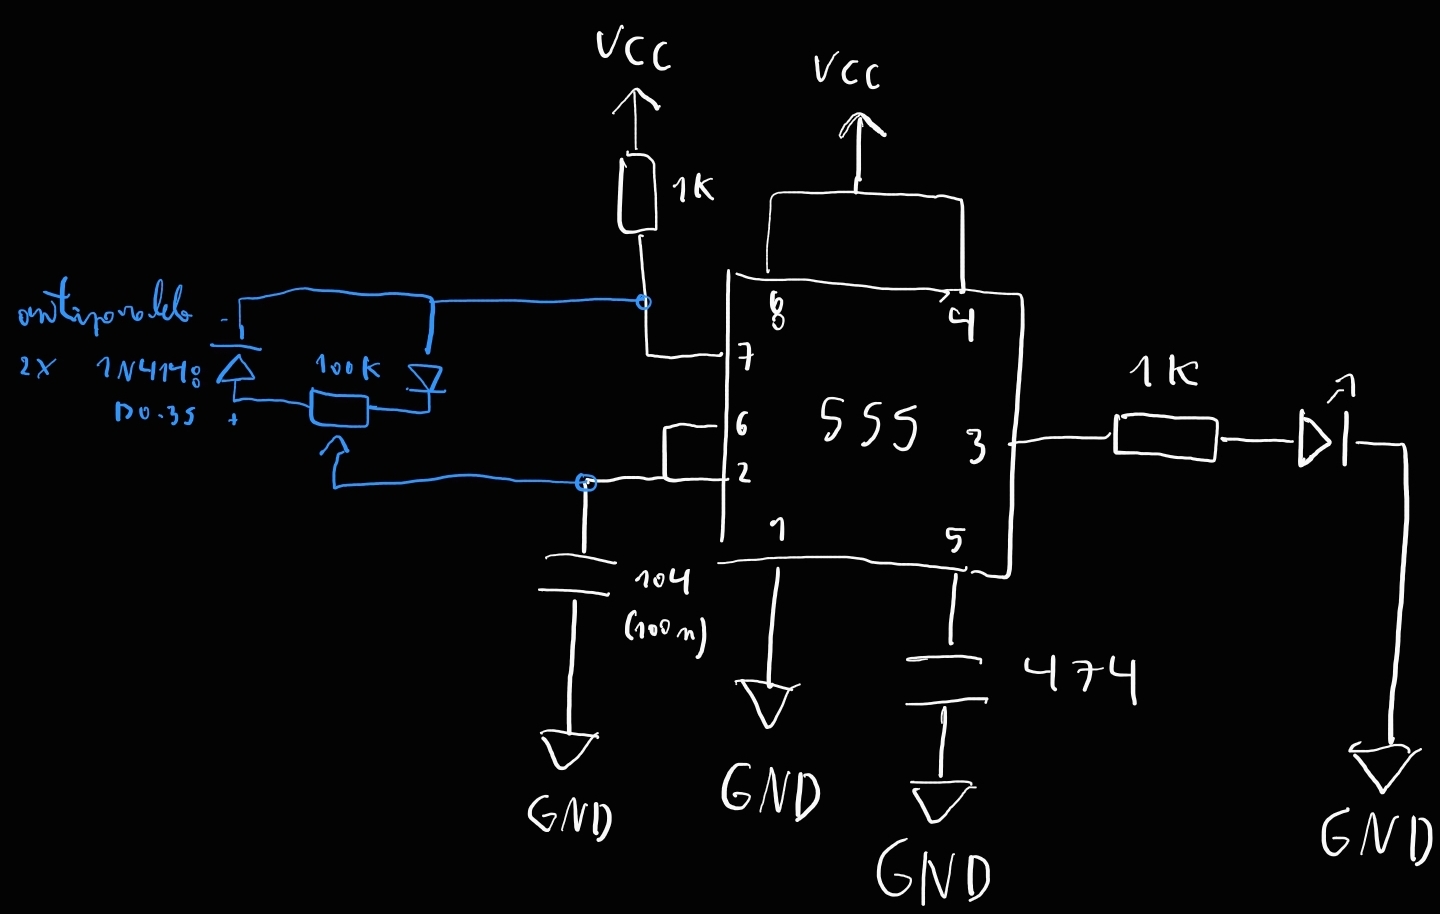 VCC
VCC
1K
antiparalelo
-
2X 1N4148
100K
DO-35
+
8
4
7
6
2
555
3
1
5
1K
104
(100n)
474
GND
GND
GND
GND